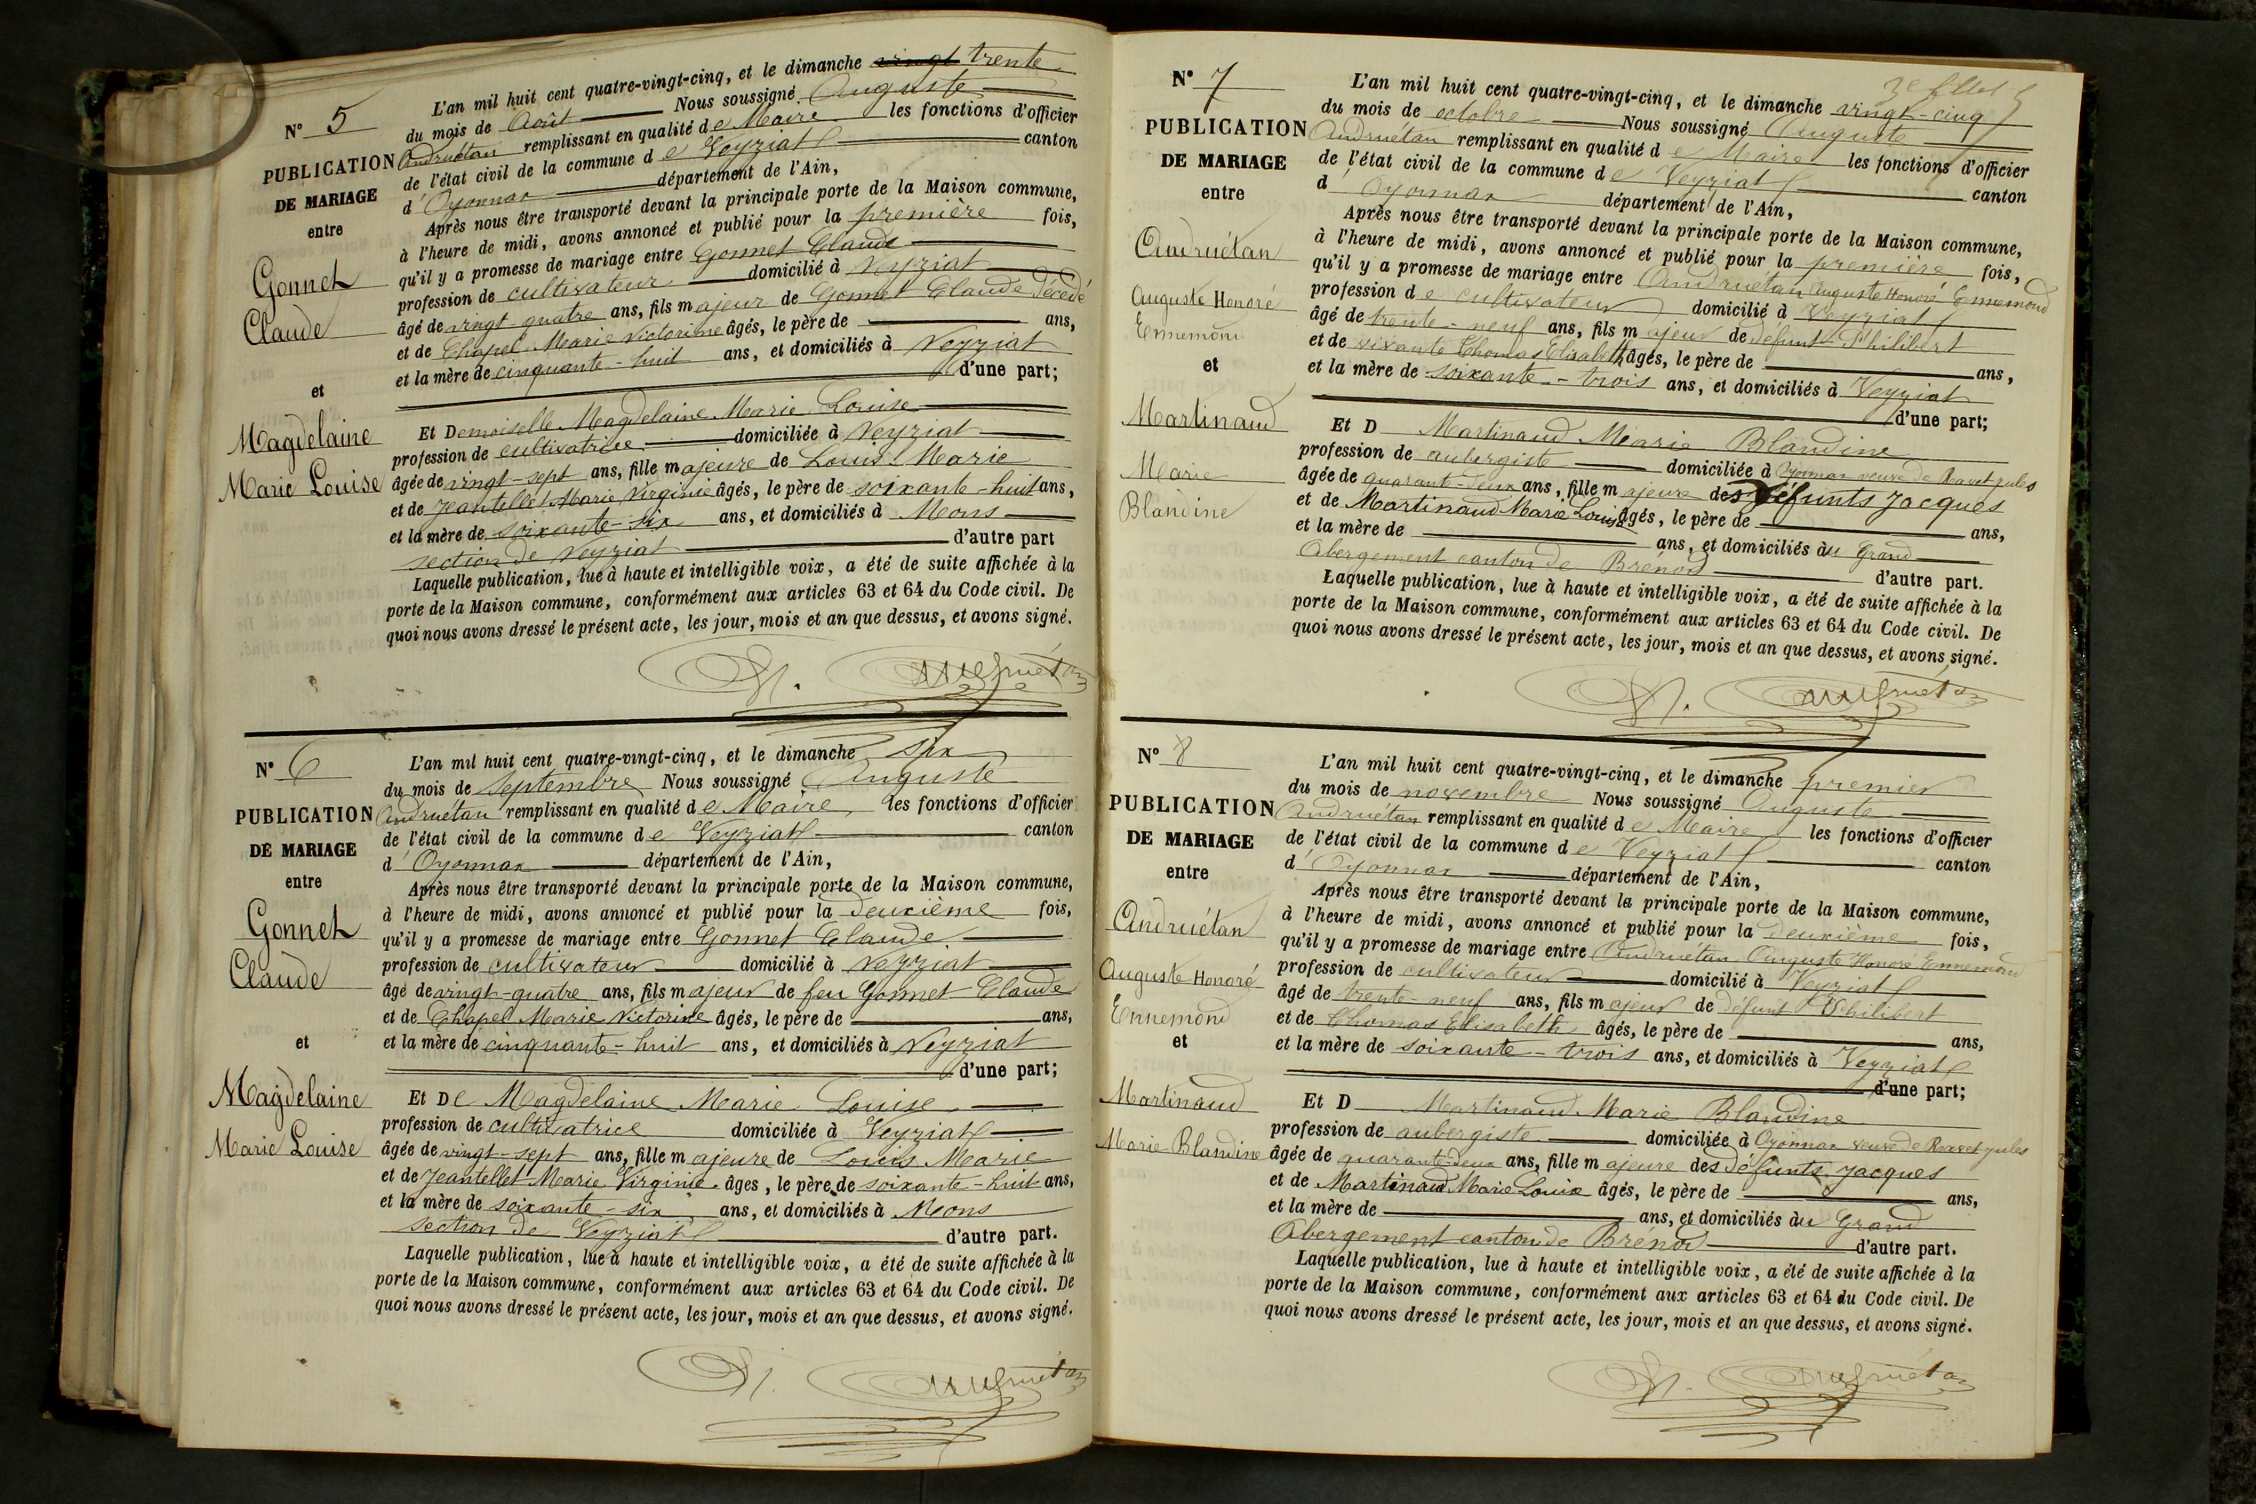 N° 5
PUBLICATION
DE MARIAGE
entre
Gonnet
Claude
et
Magdelaine
Marie Louise
L'an mil huit cent quatre-vingt-cinq, et le dimanche vingt trente
du mois de Août Nous soussigné Auguste
Andruétan remplissant en qualité de Maire les fonctions d'officier
de l'état civil de la commune de Veyziat canton
d'Oyonnax département de l'Ain,
Après nous être transporté devant la principale porte de la Maison commune,
à l'heure de midi, avons annoncé et publié pour la première fois,
qu'il y a promesse de mariage entre Gonnet Claude
profession de cultivateur domicilié à Veyziat
âgé de vingt-quatre ans, fils majeur de Gonnet Claude décédé
et de Chapel Marie Victorine âgés, le père de ans,
et la mère de cinquante-huit ans, et domiciliés à Veyziat
d'une part;
Et Demoiselle Magdelaine Marie Louise
profession de cultivatrice domiciliée à Veyziat
âgée de vingt-sept ans, fille majeure de Louis Marie
et de Jeantellet Marie Virginie âgés, le père de soixante-huit ans,
et la mère de soixante-six ans, et domiciliés à Mons
section de Veyziat d'autre part
Laquelle publication, lue à haute et intelligible voix, a été de suite affichée à la
porte de la Maison commune, conformément aux articles 63 et 64 du Code civil. De
quoi nous avons dressé le présent acte, les jour, mois et an que dessus, et avons signé.
A. Andruétan
N° 6
PUBLICATION
DE MARIAGE
entre
Gonnet
Claude
et
Magdelaine
Marie Louise
L'an mil huit cent quatre-vingt-cinq, et le dimanche six
du mois de Septembre Nous soussigné Auguste
Andruétan remplissant en qualité de Maire les fonctions d'officier
de l'état civil de la commune de Veyziat canton
d'Oyonnax département de l'Ain,
Après nous être transporté devant la principale porte de la Maison commune,
à l'heure de midi, avons annoncé et publié pour la deuxième fois,
qu'il y a promesse de mariage entre Gonnet Claude
profession de cultivateur domicilié à Veyziat
âgé de vingt-quatre ans, fils majeur de feu Gonnet Claude
et de Chapel Marie Victorine âgés, le père de ans,
et la mère de cinquante-huit ans, et domiciliés à Veyziat
d'une part;
Et De Magdelaine Marie Louise
profession de cultivatrice domiciliée à Veyziat
âgée de vingt-sept ans, fille majeure de Louis Marie
et de Jeantellet Marie Virginie âges, le père de soixante-huit ans,
et la mère de soixante-six ans, et domiciliés à Mons
section de Veyziat d'autre part.
Laquelle publication, lue à haute et intelligible voix, a été de suite affichée à la
porte de la Maison commune, conformément aux articles 63 et 64 du Code civil. De
quoi nous avons dressé le présent acte, les jour, mois et an que dessus, et avons signé.
A. Andruétan
N° 7
PUBLICATION
DE MARIAGE
entre
Andruétan
Auguste Honoré
Ennemond
et
Martinaud
Marie
Blandine
L'an mil huit cent quatre-vingt-cinq, et le dimanche vingt-cinq
du mois de octobre Nous soussigné Auguste
Andruétan remplissant en qualité de Maire les fonctions d'officier
de l'état civil de la commune de Veyziat canton
d'Oyonnax département de l'Ain,
Après nous être transporté devant la principale porte de la Maison commune,
à l'heure de midi, avons annoncé et publié pour la première fois,
qu'il y a promesse de mariage entre Andruétan Auguste Honoré Ennemond
profession de cultivateur domicilié à Veyziat
âgé de trente-neuf ans, fils majeur de défunt Philibert
et de vivante Thomas Elisabeth âgés, le père de ans,
et la mère de soixante-trois ans, et domiciliés à Veyziat
d'une part;
Et D Martinaud Marie Blandine
profession de aubergiste domiciliée à Oyonnax veuve de Ravet jules
âgée de quarant-deux ans, fille majeure des défunts Jacques
et de Martinaud Marie Louise âgés, le père de ans,
et la mère de ans, et domiciliés au Grand
Abergement canton de Brénod d'autre part.
Laquelle publication, lue à haute et intelligible voix, a été de suite affichée à la
porte de la Maison commune, conformément aux articles 63 et 64 du Code civil. De
quoi nous avons dressé le présent acte, les jour, mois et an que dessus, et avons signé.
A. Andruétan
N° 8
PUBLICATION
DE MARIAGE
entre
Andruétan
Auguste Honoré
Ennemond
et
Martinaud
Marie Blandine
L'an mil huit cent quatre-vingt-cinq, et le dimanche premier
du mois de novembre Nous soussigné Auguste
Andruétan remplissant en qualité de Maire les fonctions d'officier
de l'état civil de la commune de Veyziat canton
d'Oyonnax département de l'Ain,
Après nous être transporté devant la principale porte de la Maison commune,
à l'heure de midi, avons annoncé et publié pour la deuxième fois,
qu'il y a promesse de mariage entre Andruétan Auguste Honoré Ennemond
profession de cultivateur domicilié à Veyziat
âgé de trente-neuf ans, fils majeur de défunt Philibert
et de Thomas Elisabeth âgés, le père de ans,
et la mère de soixante-trois ans, et domiciliés à Veyziat
d'une part;
Et D Martinaud Marie Blandine
profession de aubergiste domiciliée à Oyonnax veuve de Ravet jules
âgée de quarante-deux ans, fille majeure des défunts Jacques
et de Martinaud Marie Louise âgés, le père de ans,
et la mère de ans, et domiciliés au Grand
Abergement canton de Brénod d'autre part.
Laquelle publication, lue à haute et intelligible voix, a été de suite affichée à la
porte de la Maison commune, conformément aux articles 63 et 64 du Code civil. De
quoi nous avons dressé le présent acte, les jour, mois et an que dessus, et avons signé.
A. Andruétan